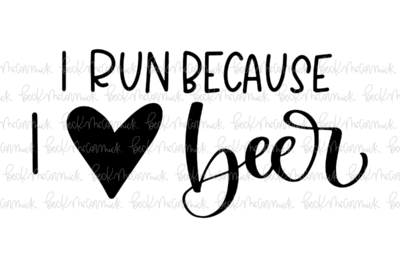 I RUN BECAUSE
I ♥ beer